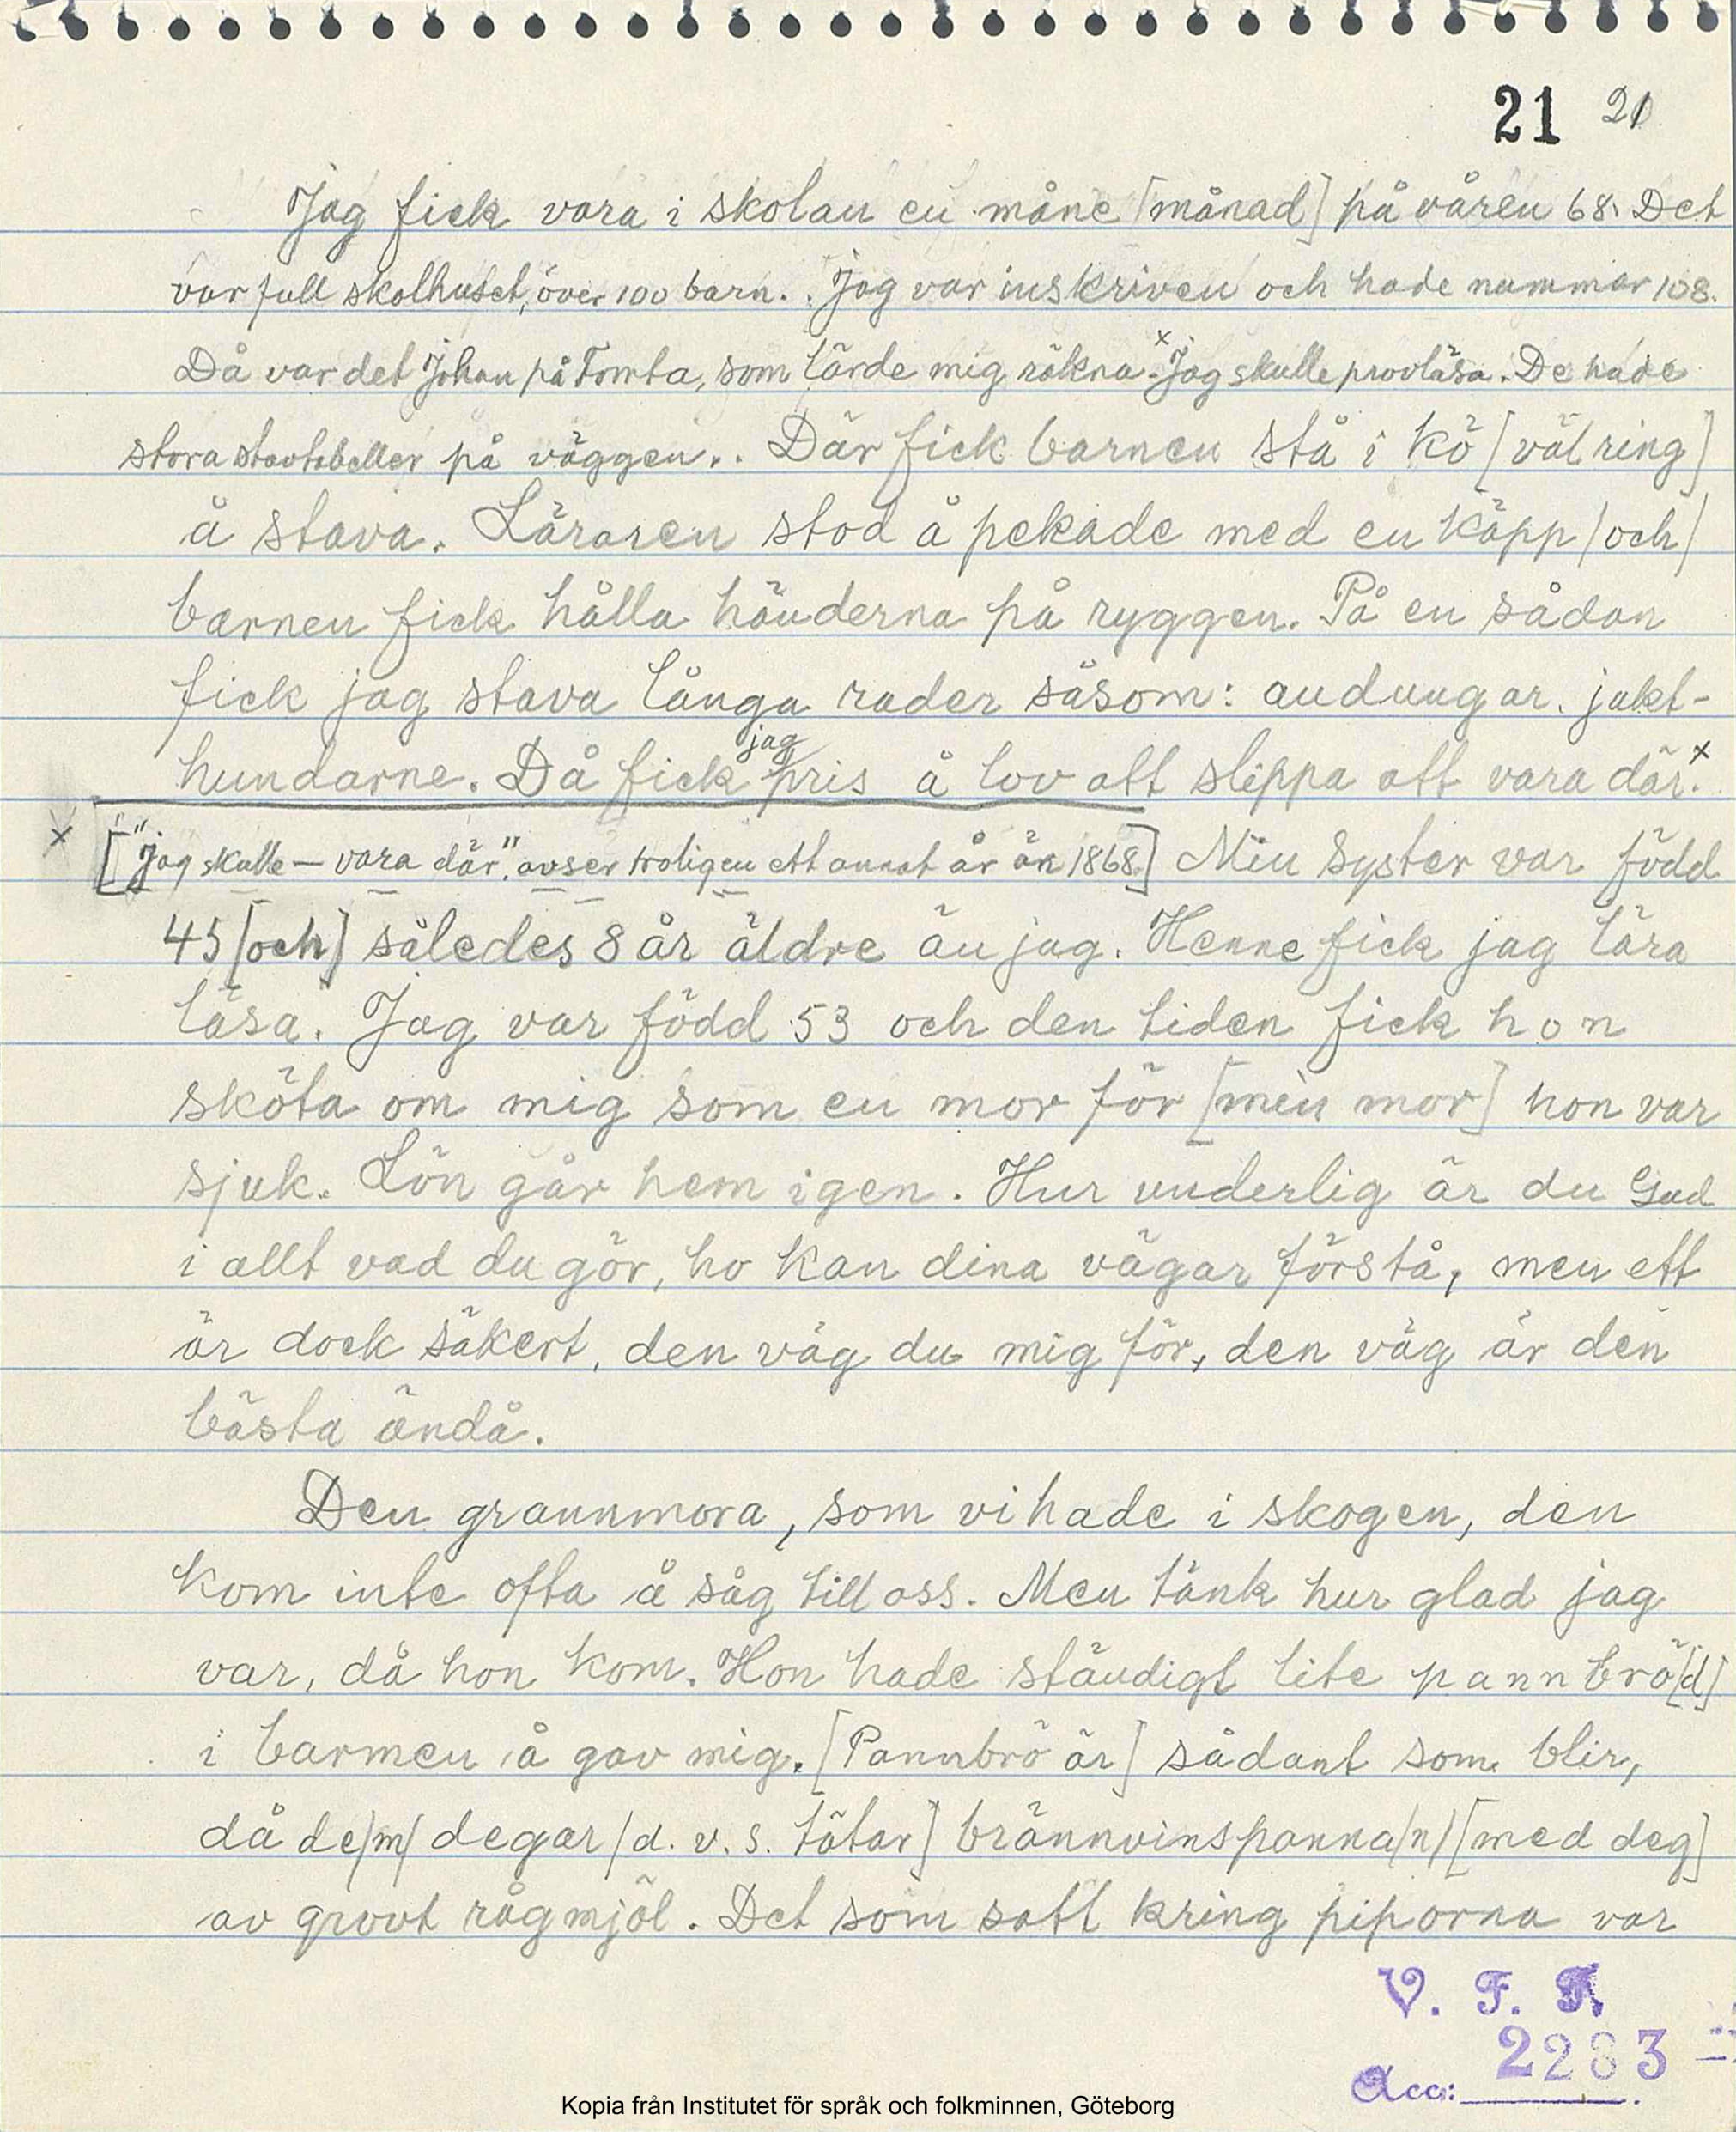 21 21
Jag fick vara i skolan en måne [månad] på våren 68. Det
var full skolhuset, över 100 barn. Jag var inskriven och hade nummar 108.
Då var det Johan på Tomta, som lärde mig räkna. x Jag skulle provläsa. De hade
stora stavtabeller på väggen.. Där fick barnen stå i kö [väl ring]
å stava. Läraren stod å pekade med en käpp /och/
barnen fick hålla händerna på ryggen. På en sådan
fick jag stava långa rader såsom: andungar. jakt-
hundarne. Då fick jag pris å lov att slippa att vara där. x
x ["Jag skulle – vara där". avser troligen ett annat år än 1868.] Min syster var född
45 [och] således 8 år äldre än jag. Henne fick jag lära
läsa. Jag var född 53 och den tiden fick hon
sköta om mig som en mor för [min mor] hon var
sjuk. Lön går hem igen. Hur underlig är du Gud
i allt vad du gör, ho kan dina vägar förstå, men ett
är dock säkert, den väg du mig för, den väg är den
bästa ändå.
Den grannmora, som vi hade i skogen, den
kom inte ofta å såg till oss. Men tänk hur glad jag
var, då hon kom. Hon hade ständigt lite pannbrö[d]
i barmen å gav mig. [Pannbrö är] sådant som blir,
då de/m/ degar /d. v. s. tätar] brännvinspanna/n/ [med deg]
av grovt rågmjöl. Det som satt kring piporna var
V. F. F.
2283
Acc:
Kopia från Institutet för språk och folkminnen, Göteborg